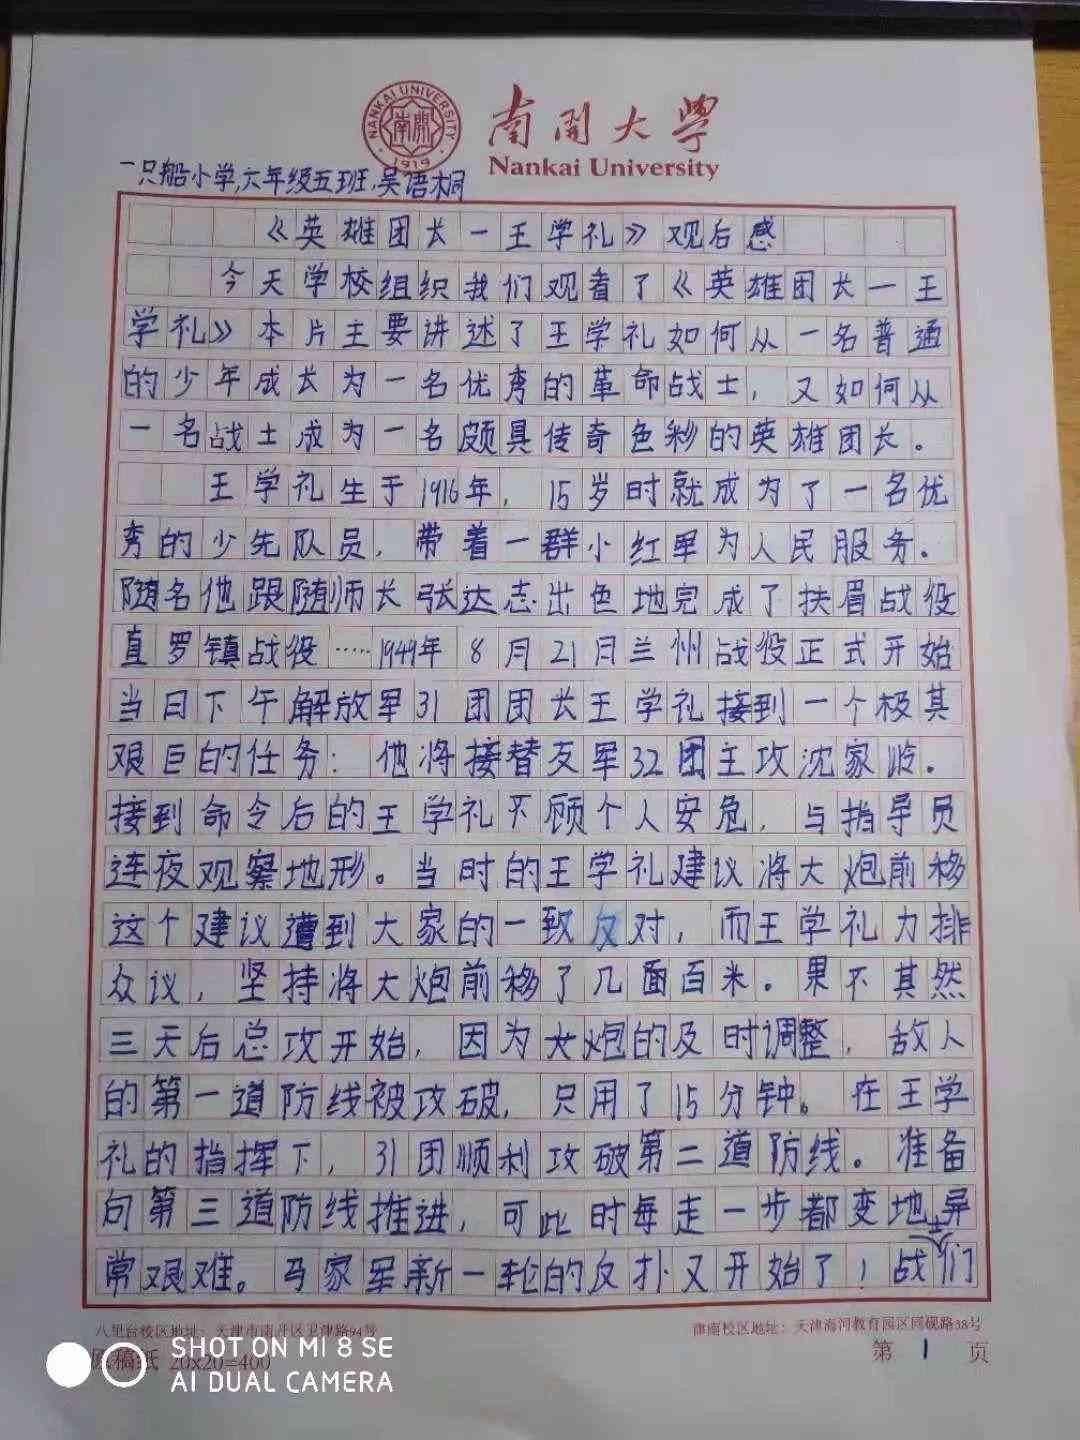 NANKAI UNIVERSITY
南開
1919
南開大學
Nankai University
一只船小学,六年级五班,吴语桐
《英雄团长一王学礼》观后感
今天学校组织我们观看了《英雄团长一王
学礼》本片主要讲述了王学礼如何从一名普通
的少年成长为一名优秀的革命战士,又如何从
一名战士成为一名颇具传奇色彩的英雄团长。
王学礼生于1916年,15岁时就成为了一名优
秀的少先队员,带着一群小红军为人民服务。
随名他跟随师长张达志出色地完成了扶眉战役
直罗镇战役……1949年8月21日兰州战役正式开始
当日下午解放军31团团长王学礼接到一个极其
艰巨的任务:他将接替友军32团主攻沈家岭。
接到命令后的王学礼不顾个人安危,与指导员
连夜观察地形。当时的王学礼建议将大炮前移
这个建议遭到大家的一致反对,而王学礼力排
众议,坚持将大炮前移了几面百米。果不其然
三天后总攻开始,因为大炮的及时调整,敌人
的第一道防线被攻破,只用了15分钟。在王学
礼的指挥下,31团顺利攻破第二道防线。准备
向第三道防线推进,可此时每走一步都变地异
常艰难。马家军新一轮的反扑又开始了!战士们
八里台校区地址:天津市南开区卫津路94号
津南校区地址:天津海河教育园区同砚路38号
原稿纸 20x20=400
第 1 页
SHOT ON MI 8 SE
AI DUAL CAMERA